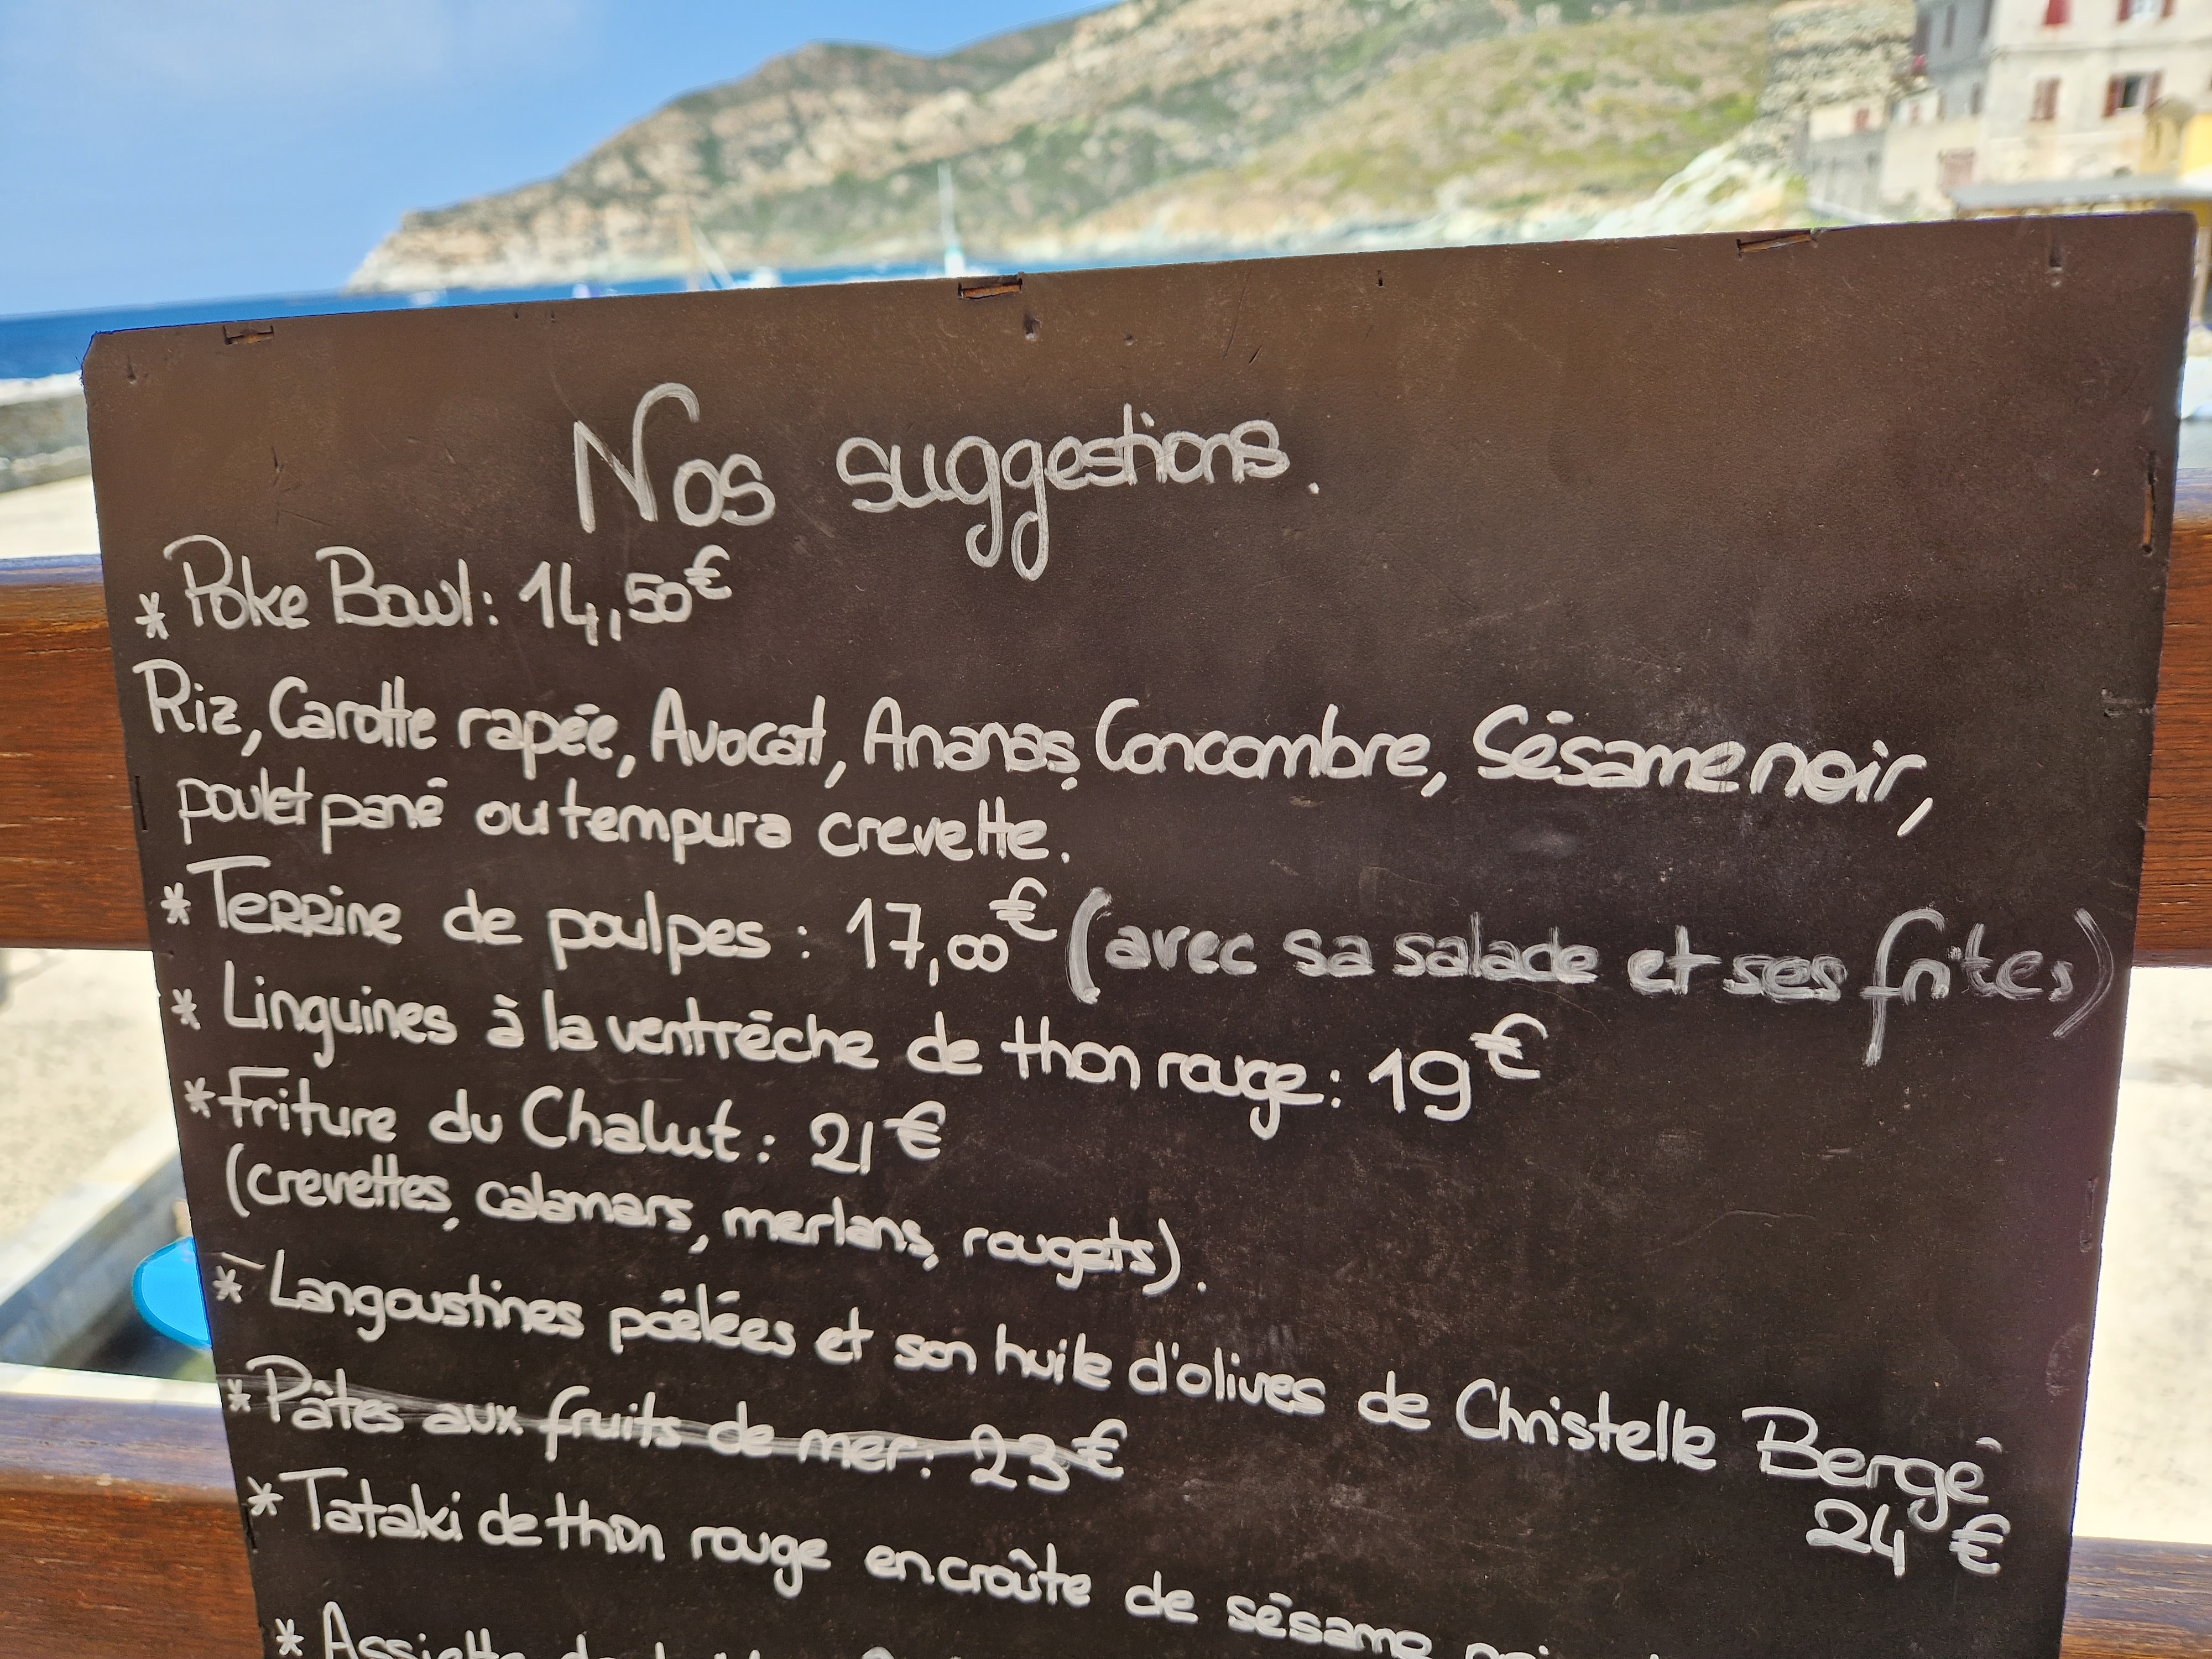 Nos suggestions.
* Poke Bowl : 14,50€
Riz, Carotte rapée, Avocat, Ananas, Concombre, Sésame noir,
poulet pané ou tempura crevette.
* Terrine de poulpes : 17,00€ (avec sa salade et ses frites)
* Linguines à la ventrêche de thon rouge : 19€
* Friture du Chalut : 21€
(crevettes, calamars, merlans, rougets).
* Langoustines poêlées et son huile d'olives de Christelle Bergé
24€
* Pâtes aux fruits de mer : 23€
* Tataki de thon rouge en croûte de sésame
* Assiette